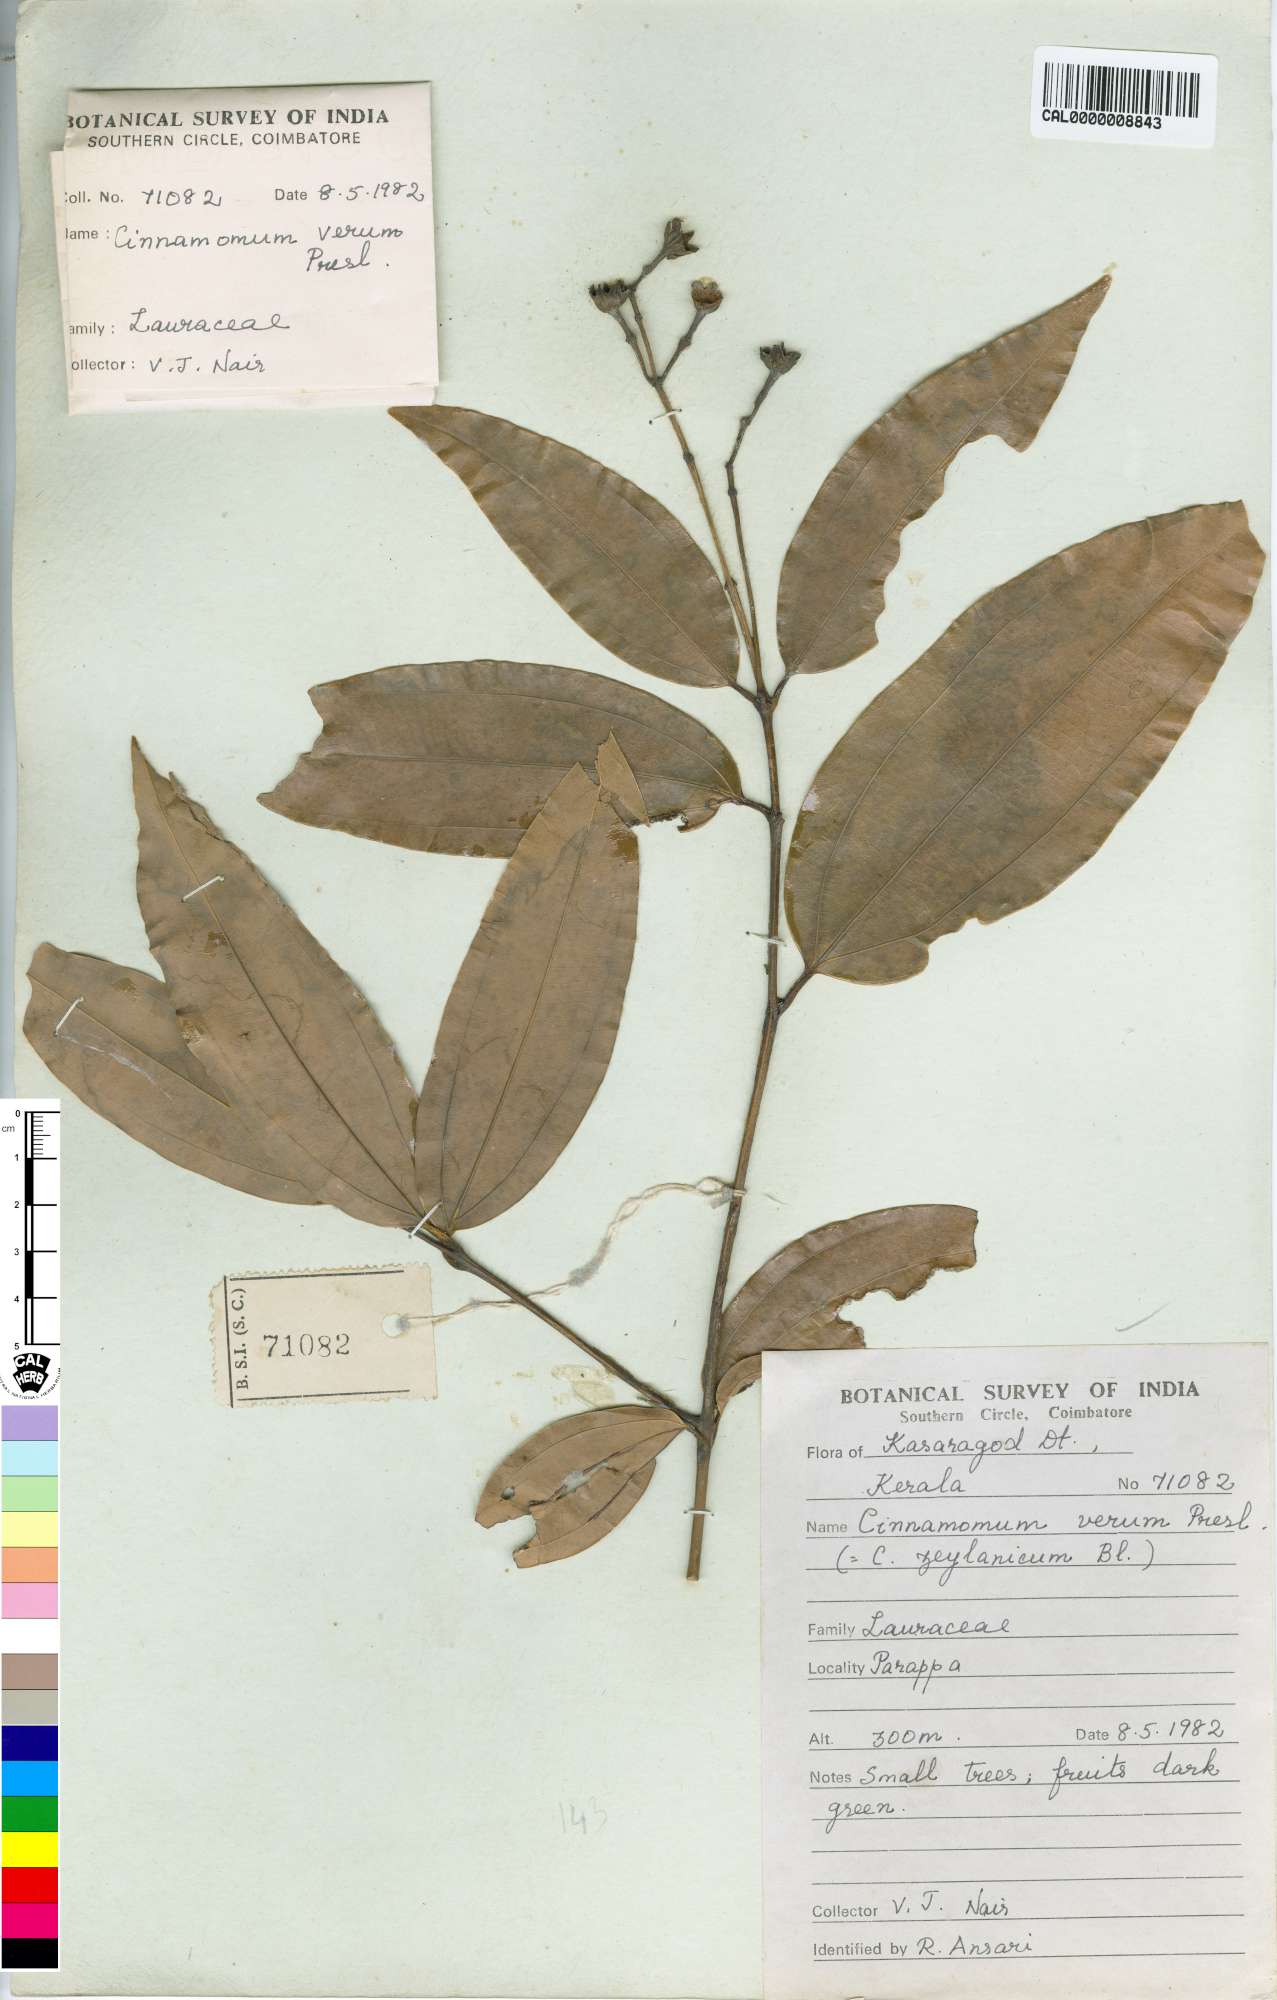 CAL0000008843
BOTANICAL SURVEY OF INDIA
SOUTHERN CIRCLE, COIMBATORE
Coll. No. 71082 Date 8.5.1982
Name: Cinnamomum verum
Presl.
Family: Lauraceae
Collector: V.J. Nair
0
cm
1
2
3
4
5
CAL
HERB
B. S.I. (S. C.)
71082
BOTANICAL SURVEY OF INDIA
Southern Circle, Coimbatore
Flora of Kasaragod Dt.,
Kerala No 71082
Name Cinnamomum verum Presl.
(= C. zeylanicum Bl.)
Family Lauraceae
Locality Parappa
Alt. 300m. Date 8.5.1982
Notes Small trees; fruits dark
green.
Collector V. J. Nair
Identified by R. Ansari
143